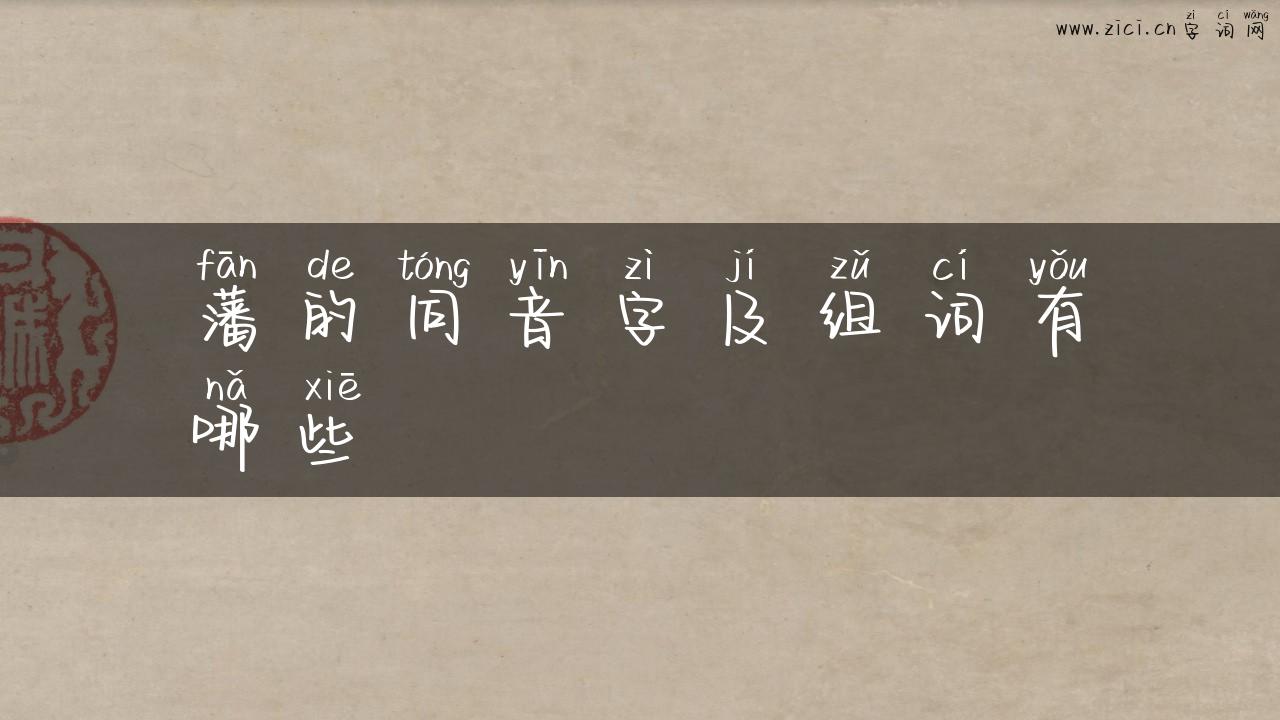 zì cí wǎng
www.zici.cn 字词网
fān de tóng yīn zì jí zǔ cí yǒu
藩的同音字及组词有
nǎ xiē
哪些